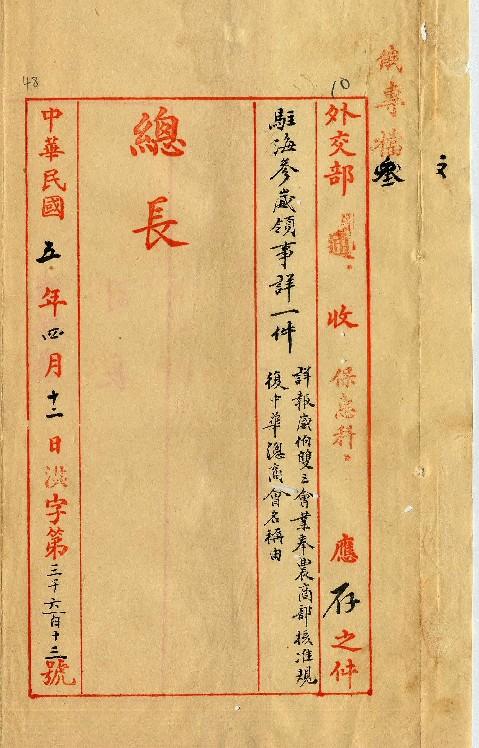 48
10
俄專檔
叁
文
外交部 通 收 保惠科 應 存 之件
駐海參崴領事詳一件
詳報崴伯雙三會業奉農商部核准規
復中華總商會名稱由
總長
中華民國五年四月十二日洪字第三千六百十三號